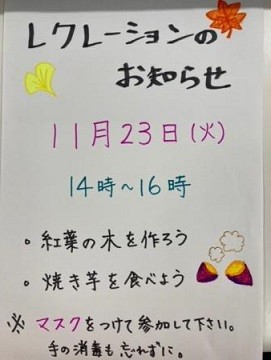 レクレーションの
お知らせ
11月23日(火)
14時～16時
。紅葉の木を作ろう
。焼き芋を食べよう
※マスクをつけて参加して下さい。
手の消毒も忘れずに。